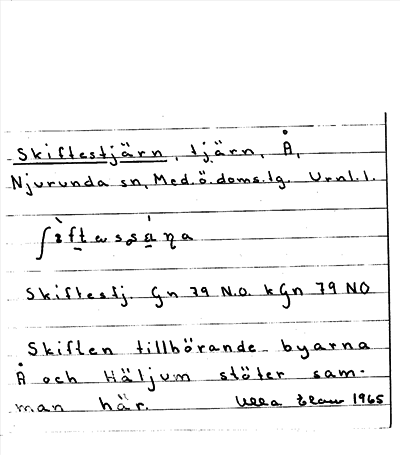 Skiftestjärn, tjärn, Å,
Njurunda sn, Med.ö.doms.lg. Vrnl.l.
Skiftestj. Gn 79 N.O. kGn 79 NO
Skiften tillhörande byarna
Å och Häljum stöter sam-
man här. Ulla 1965